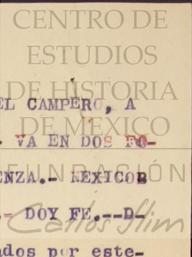 CENTRO DE
ESTUDIOS
DE HISTORIA
EL CAMPERO, A
DE MEXICO
VA EN DOS FO-
FUNDACIÓN
ENZA.- MEXICO
Carlos Slim
.- DOY FE.--D-
ados por este-